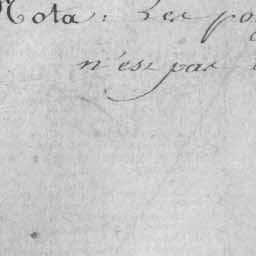 Nota: Les po
n'est pas